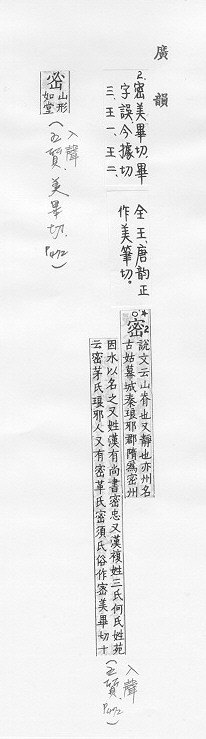 廣韻
2.密美畢切,畢
字誤,今據切
三、王一、王二、
全王、唐韵正
作美筆切。
密2
說文云山脊也又靜也亦州名
古姑幕城秦琅邪郡隋為密州
因水以名之又姓漢有尚書密忠又漢複姓三氏何氏姓苑
云密茅氏琅邪人又有密革氏密須氏俗作宻美畢切十
(入聲
五質
P472)
密
山形
如堂
(入聲
五質,美畢切.
P472)